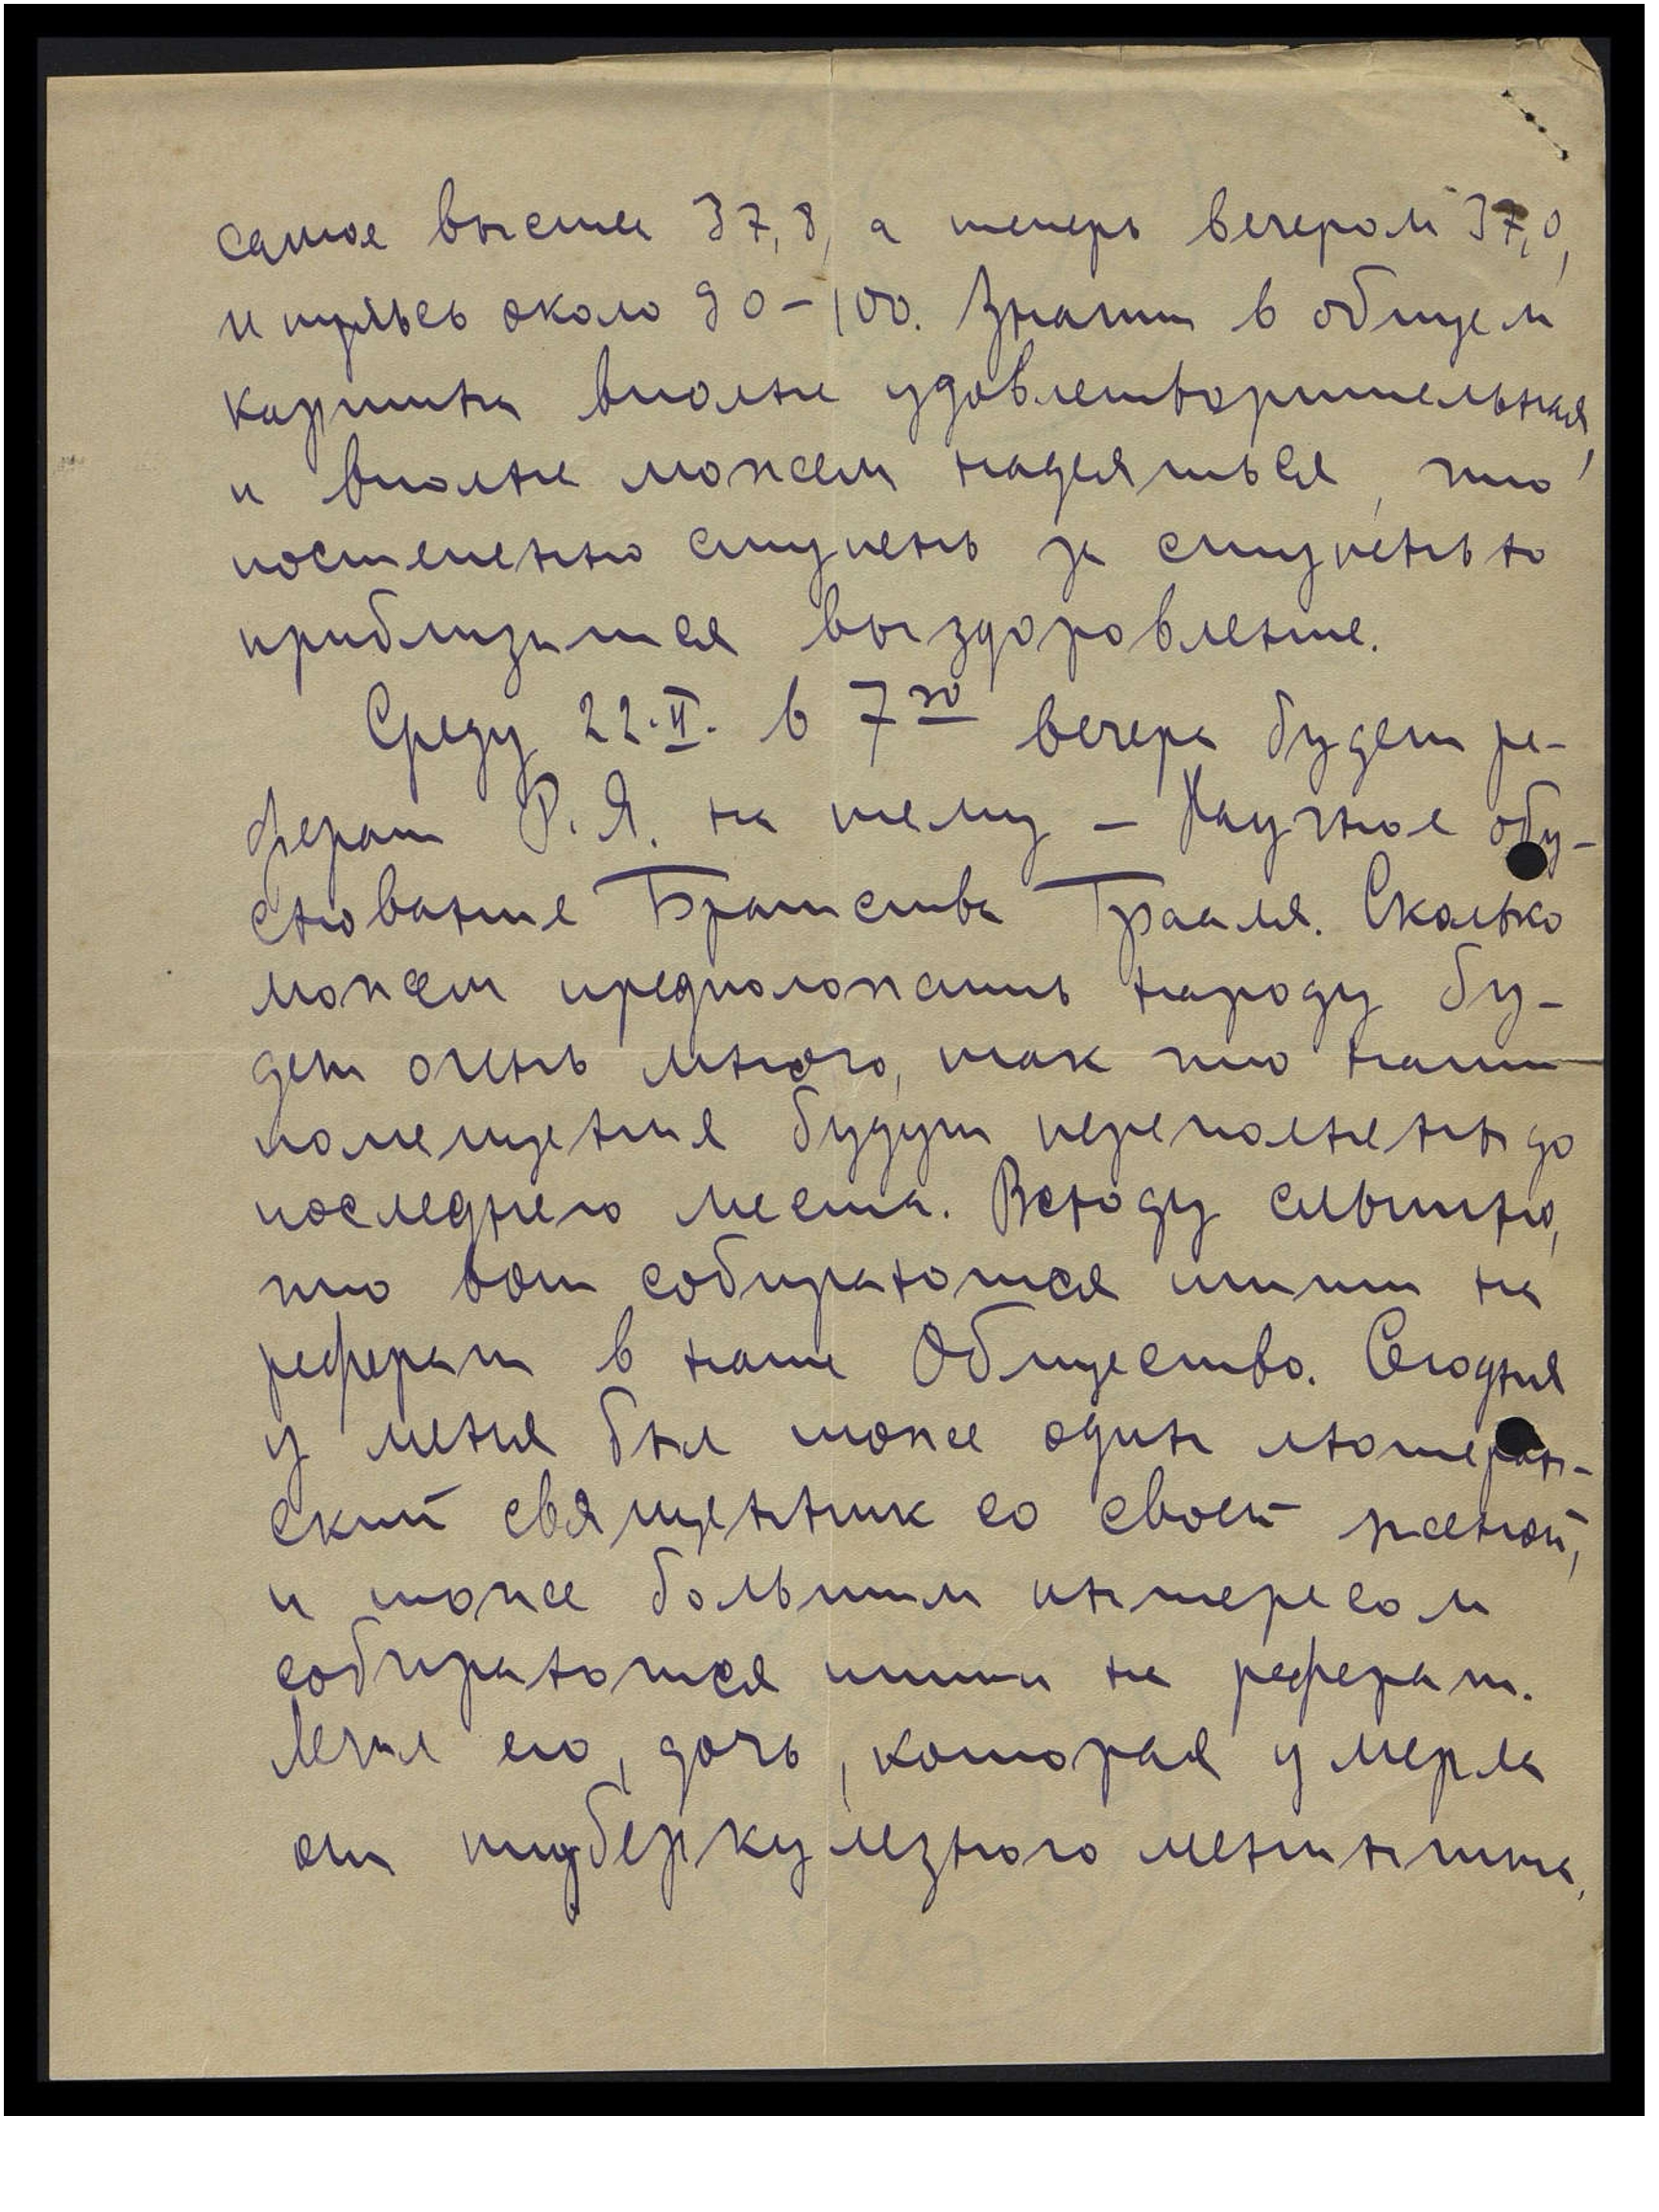 самое высшее 37,8, а теперь вечером 37,0,
и пульсь около 90–100. Значит в общем
картина вполне удовлетворительная,
и вполне можем надеяться, что
постепенно ступень за ступенью
приблизится выздоровление.
Среду 22.II. в 7 30 вечера будет ре-
ферат Р.Я. на тему – Научное обу-
снование Братства Грааля. Сколько
можем предположить народу бу-
дет очень много, так что наши
помещения будут переполнены до
последнего места. Всюду слышно,
что вот собираются итти на
реферат в наше Общество. Сегодня
у меня был тоже один лютеран-
ский священник со своей женой,
и тоже большим интересом
собираются итти на реферат.
Лечил его, дочь, которая умерла
от туберкулезного менингита,